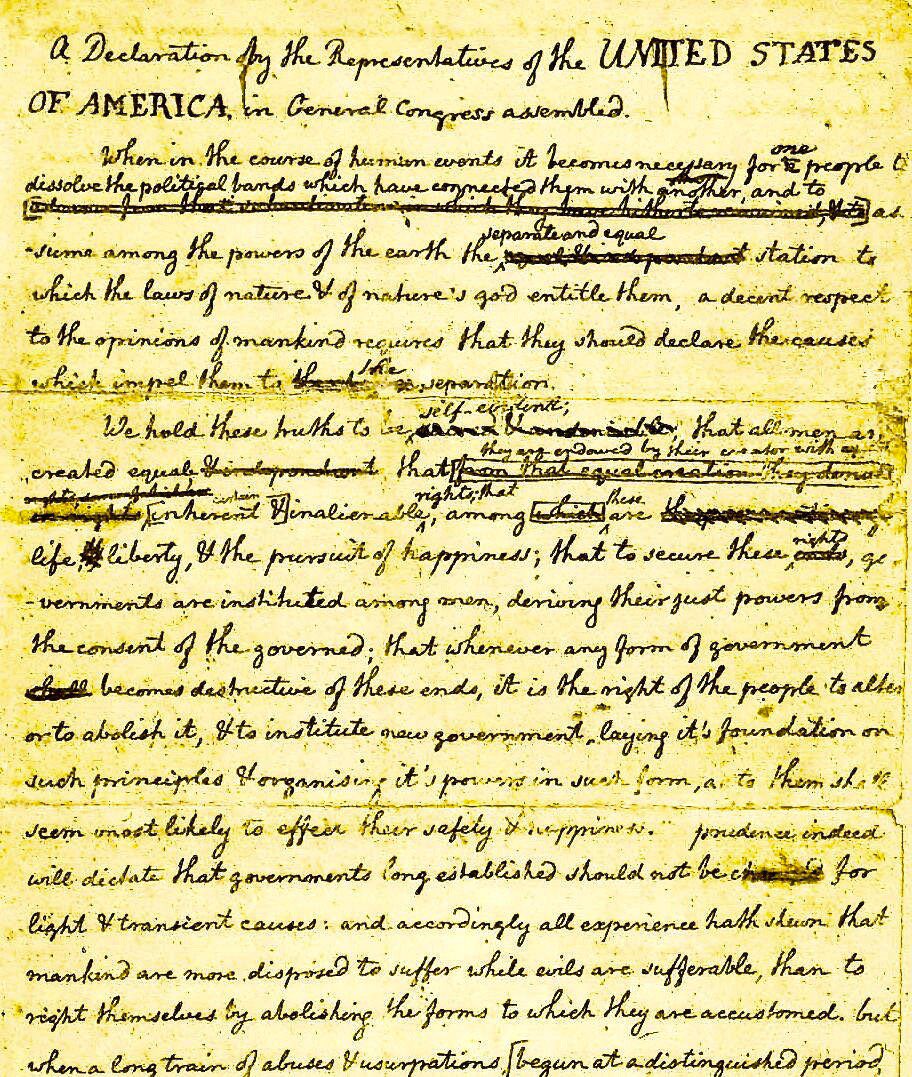 A Declaration by the Representatives of the UNITED STATES
OF AMERICA, in General Congress assembled.
When in the course of human events it becomes necessary for one people t
dissolve the political bands which have connected them with another, and to
as
-sume among the powers of the earth the separate and equal station to
which the laws of nature & of nature's god entitle them, a decent respect
to the opinions of mankind requires that they should declare the causes
which impel them to the separation.
self-evident;
We hold these truths to be that all men are
they are endowed by their creator with
created equal & independent that [from that equal creation they derive
rights; that
certain these
in rights [inherent &] inalienable, among [which] are
life, liberty, & the pursuit of happiness; that to secure these rights, go
-vernments are instituted among men, deriving their just powers from
the consent of the governed; that whenever any form of government
shall becomes destructive of these ends, it is the right of the people to alter
or to abolish it, & to institute new government, laying it's foundation on
such principles & organising it's powers in such form, as to them shall
seem most likely to effect their safety & happiness. prudence indeed
will dictate that governments long established should not be for
light & transient causes: and accordingly all experience hath shewn that
mankind are more disposed to suffer while evils are sufferable, than to
right themselves by abolishing the forms to which they are accustomed. but
when a long train of abuses & usurpations, [begun at a distinguished period,